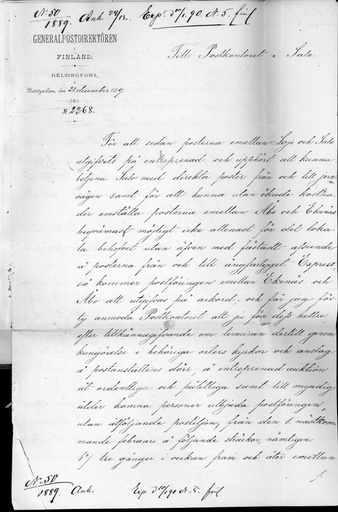 No 50/1889. Ank 24/12. Exp. d. 2/1 90. N. 5.
GENERALPOSTDIREKTÖREN
I
FINLAND.
HELSINGFORS,
Poststyrelsen, den 21 december 1889
No 2268.
Till Postkontoret i Salo.
För att sedan posterna emellan Lojo och Salo
utgifvits på entreprenad och upphört att kunna
betjena Salo med direkta poster från och till
vägen samt för att kunna utan ökade kostna
der omställa posterna emellan Åbo och Ekenäs
beqvämast möjligt icke allenast för det loka
la behofvet utan äfven med fästadt afseende
å posterna från och till ångfartyget Express,
så kommer postföringen emellan Ekenäs och
Åbo att utgifvas på ackord, och får jag för
ty anmoda Postkontoret att, på för dess heller
efter tillkännagifvande om terminen dertill genom
kungörelse i behöriga orters kyrkor och anslag
å postanstaltens dörr, å entreprenad auktion
åt ordentliga och pålitliga samt till myndig
ålder komna personer utbjuda postföringen,
utan åtföljande postiljon, från den 1. nästkom
mande februari å följande sträckor, nämligen:
1o) tre gånger i veckan fram och åter emellan
No 50/1889. Ank. Exp. d. 2/1 90 N. 5.